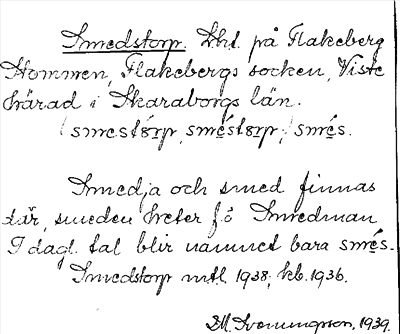 Smedstorp. Lht. på Flakeberg
Stommen, Flakebergs socken, Viste
härad i Skaraborgs län.
(smestórp, sméstorp,) smés.
Smedja och smed finnas
där, smeden heter fö Smedman
I dagl. tal blir namnet bara smés.
Smedstorp mtl. 1938, kb. 1936.
1939.